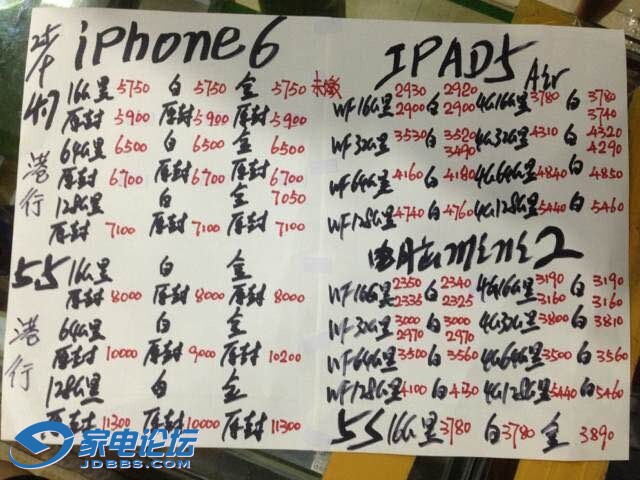 iPhone6
4.7 16G黑 5750 白 5750 金 5750 未激
原封 5900 原封 5900 原封 5900
64G黑 6500 白 6500 金 6500
原封 6700 原封 6700 原封 6700
128G黑 白 金 7050
原封 7100 原封 7100 原封 7100
港行
5.5 16G黑 白 金
原封 8000 原封 8000 原封 8000
64G黑 白 金
原封 10000 原封 9000 原封 10200
128G黑 白 金
原封 11300 原封 10000 原封 11300
港行
IPAD5 Air
2930 2920
WF16G黑 2900 白 2900 4G16G黑 3780 白 3780
3740
WF32G黑 3530 白 3520 4G32G黑 4310 白 4320
3490 4290
WF64G黑 4160 白 4180 4G64G黑 4840 白 4850
WF128G黑 4740 白 4760 4G128G黑 5440 白 5460
2
WF16G黑 2350 白 2340 4G16G黑 3190 白 3190
2335 2325 3160 3160
WF32G黑 3000 白 3000 4G32G黑 3800 白 3810
2970 2970
WF64G黑 3500 白 3560 4G64G黑 3500 白 3560
WF128G黑 4100 白 4130 4G128G黑 5440 白 5460
5S 16G黑 3780 白 3780 金 3890
家电论坛
JDBBS.COM